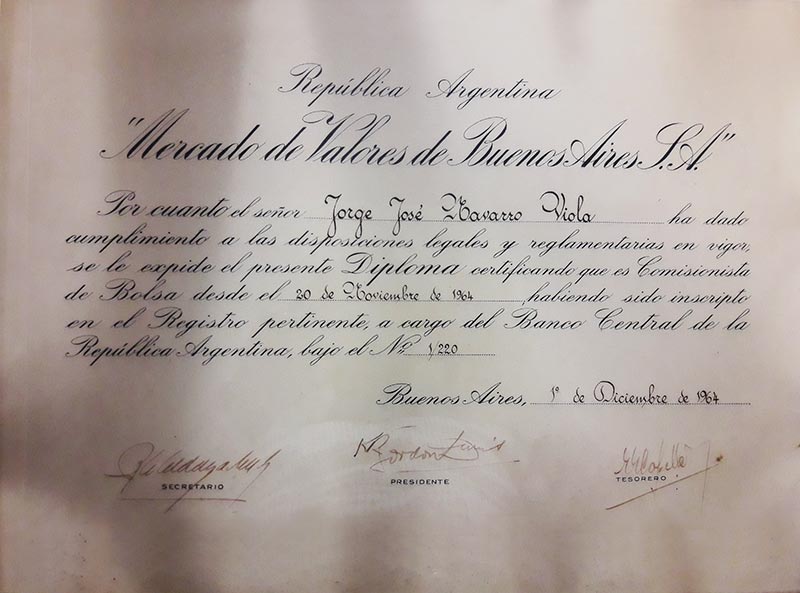 República Argentina
"Mercado de Valores de Buenos Aires S.A."
Por cuanto el señor Jorge José Navarro Viola ha dado
cumplimiento a las disposiciones legales y reglamentarias en vigor,
se le expide el presente Diploma certificando que es Comisionista
de Bolsa desde el 20 de Noviembre de 1964, habiendo sido inscripto
en el Registro pertinente, a cargo del Banco Central de la
República Argentina, bajo el Nº 1/220
Buenos Aires, 1º de Diciembre de 1964
SECRETARIO
PRESIDENTE
TESORERO